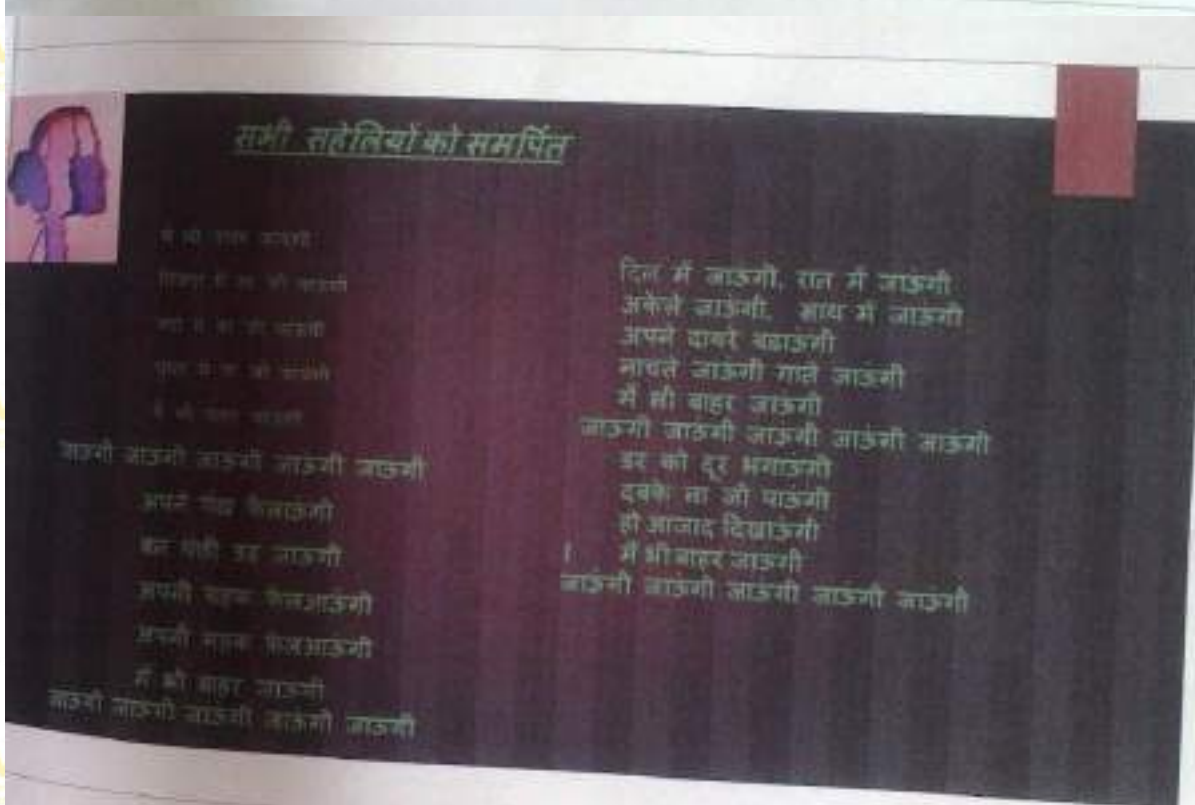 सभी सहेलियों को समर्पित
मैं भी बाहर जाऊंगी
मैं भी जाऊंगी
मैं भी जाऊंगी
भी जाऊंगी
मैं भी बाहर जाऊंगी
जाऊंगी जाऊंगी जाऊंगी जाऊंगी जाऊंगी
अपने पंख फैलाऊंगी
बन पंछी उड़ जाऊंगी
अपनी चहक फैलआऊंगी
अपनी महक फैलआऊंगी
मैं भी बाहर जाऊंगी
जाऊंगी जाऊंगी जाऊंगी जाऊंगी जाऊंगी
दिन में जाऊंगी, रात में जाऊंगी
अकेले जाऊंगी, साथ में जाऊंगी
अपने दायरे बढाऊंगी
नाचते जाऊंगी गाते जाऊंगी
मैं भी बाहर जाऊंगी
जाऊंगी जाऊंगी जाऊंगी जाऊंगी जाऊंगी
डर को दूर भगाऊंगी
दबके ना जी पाऊंगी
हो आजाद दिखाऊंगी
। मैं भी बाहर जाऊंगी
जाऊंगी जाऊंगी जाऊंगी जाऊंगी जाऊंगी